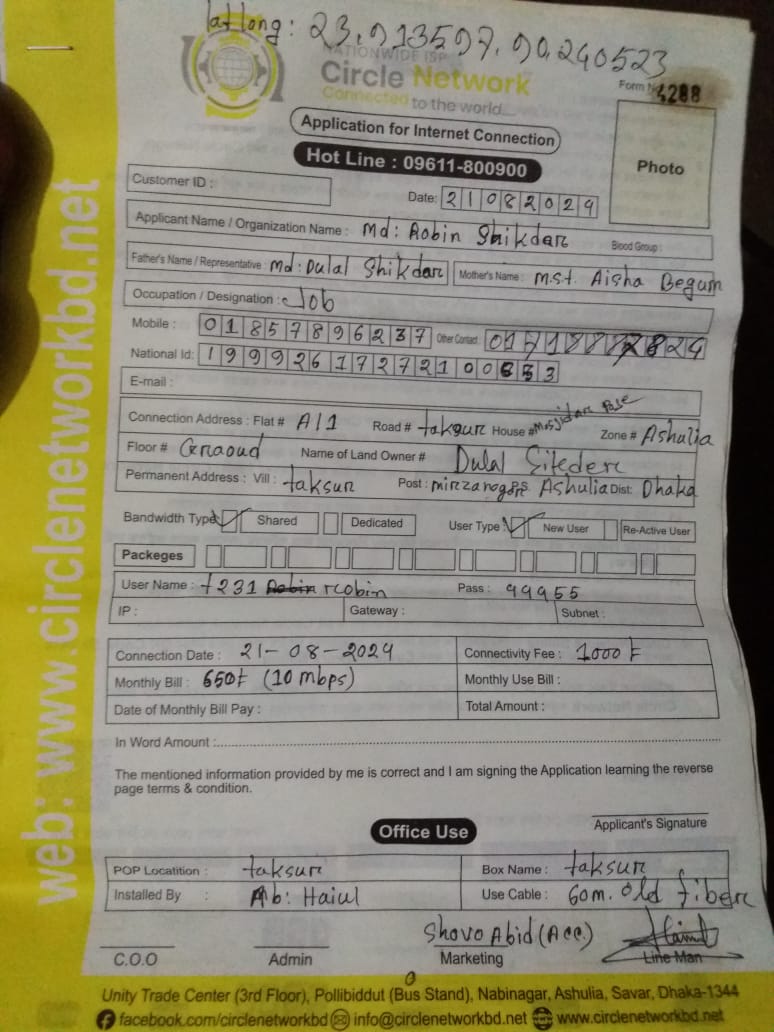 lat long: 23.913597, 90.240523
NATIONWIDE ISP
Circle Network
Connected to the world...
Form No 4288
Application for Internet Connection
Hot Line : 09611-800900
Photo
Customer ID :
Date: 21082024
Applicant Name / Organization Name : Md: Robin Shikdar Blood Group :
Father's Name / Representative : Md: Dulal Shikdar Mother's Name : Mst. Aisha Begum
Occupation / Designation : Job
Mobile : 01857896237 Other Contact
National Id: 19992617272100653
E-mail :
Connection Address : Flat # A/1 Road # taksur House # Zone # Ashulia
Floor # Graoud Name of Land Owner # Dulal
Permanent Address : Vill : taksur Post : Ashulia Dist: Dhaka
Bandwidth Type Shared Dedicated User Type : New User Re-Active User
Packeges
User Name : t231 Robin rcobin Pass : 99955
IP : Gateway : Subnet :
Connection Date : 21-08-2024 Connectivity Fee : 1000 ৳
Monthly Bill : 650৳ (10 mbps) Monthly Use Bill :
Date of Monthly Bill Pay : Total Amount :
In Word Amount :
The mentioned information provided by me is correct and I am signing the Application learning the reverse
page terms & condition.
Applicant's Signature
Office Use
POP Locatition : taksur Box Name : taksur
Installed By : Ab: Haiul Use Cable : 60m. old fiber
Shovo Abid (Acc.)
C.O.O Admin Marketing Line Man
Unity Trade Center (3rd Floor), Pollibiddut (Bus Stand), Nabinagar, Ashulia, Savar, Dhaka-1344
facebook.com/circlenetworkbd info@circlenetworkbd.net www.circlenetworkbd.net
web: www.circlenetworkbd.net